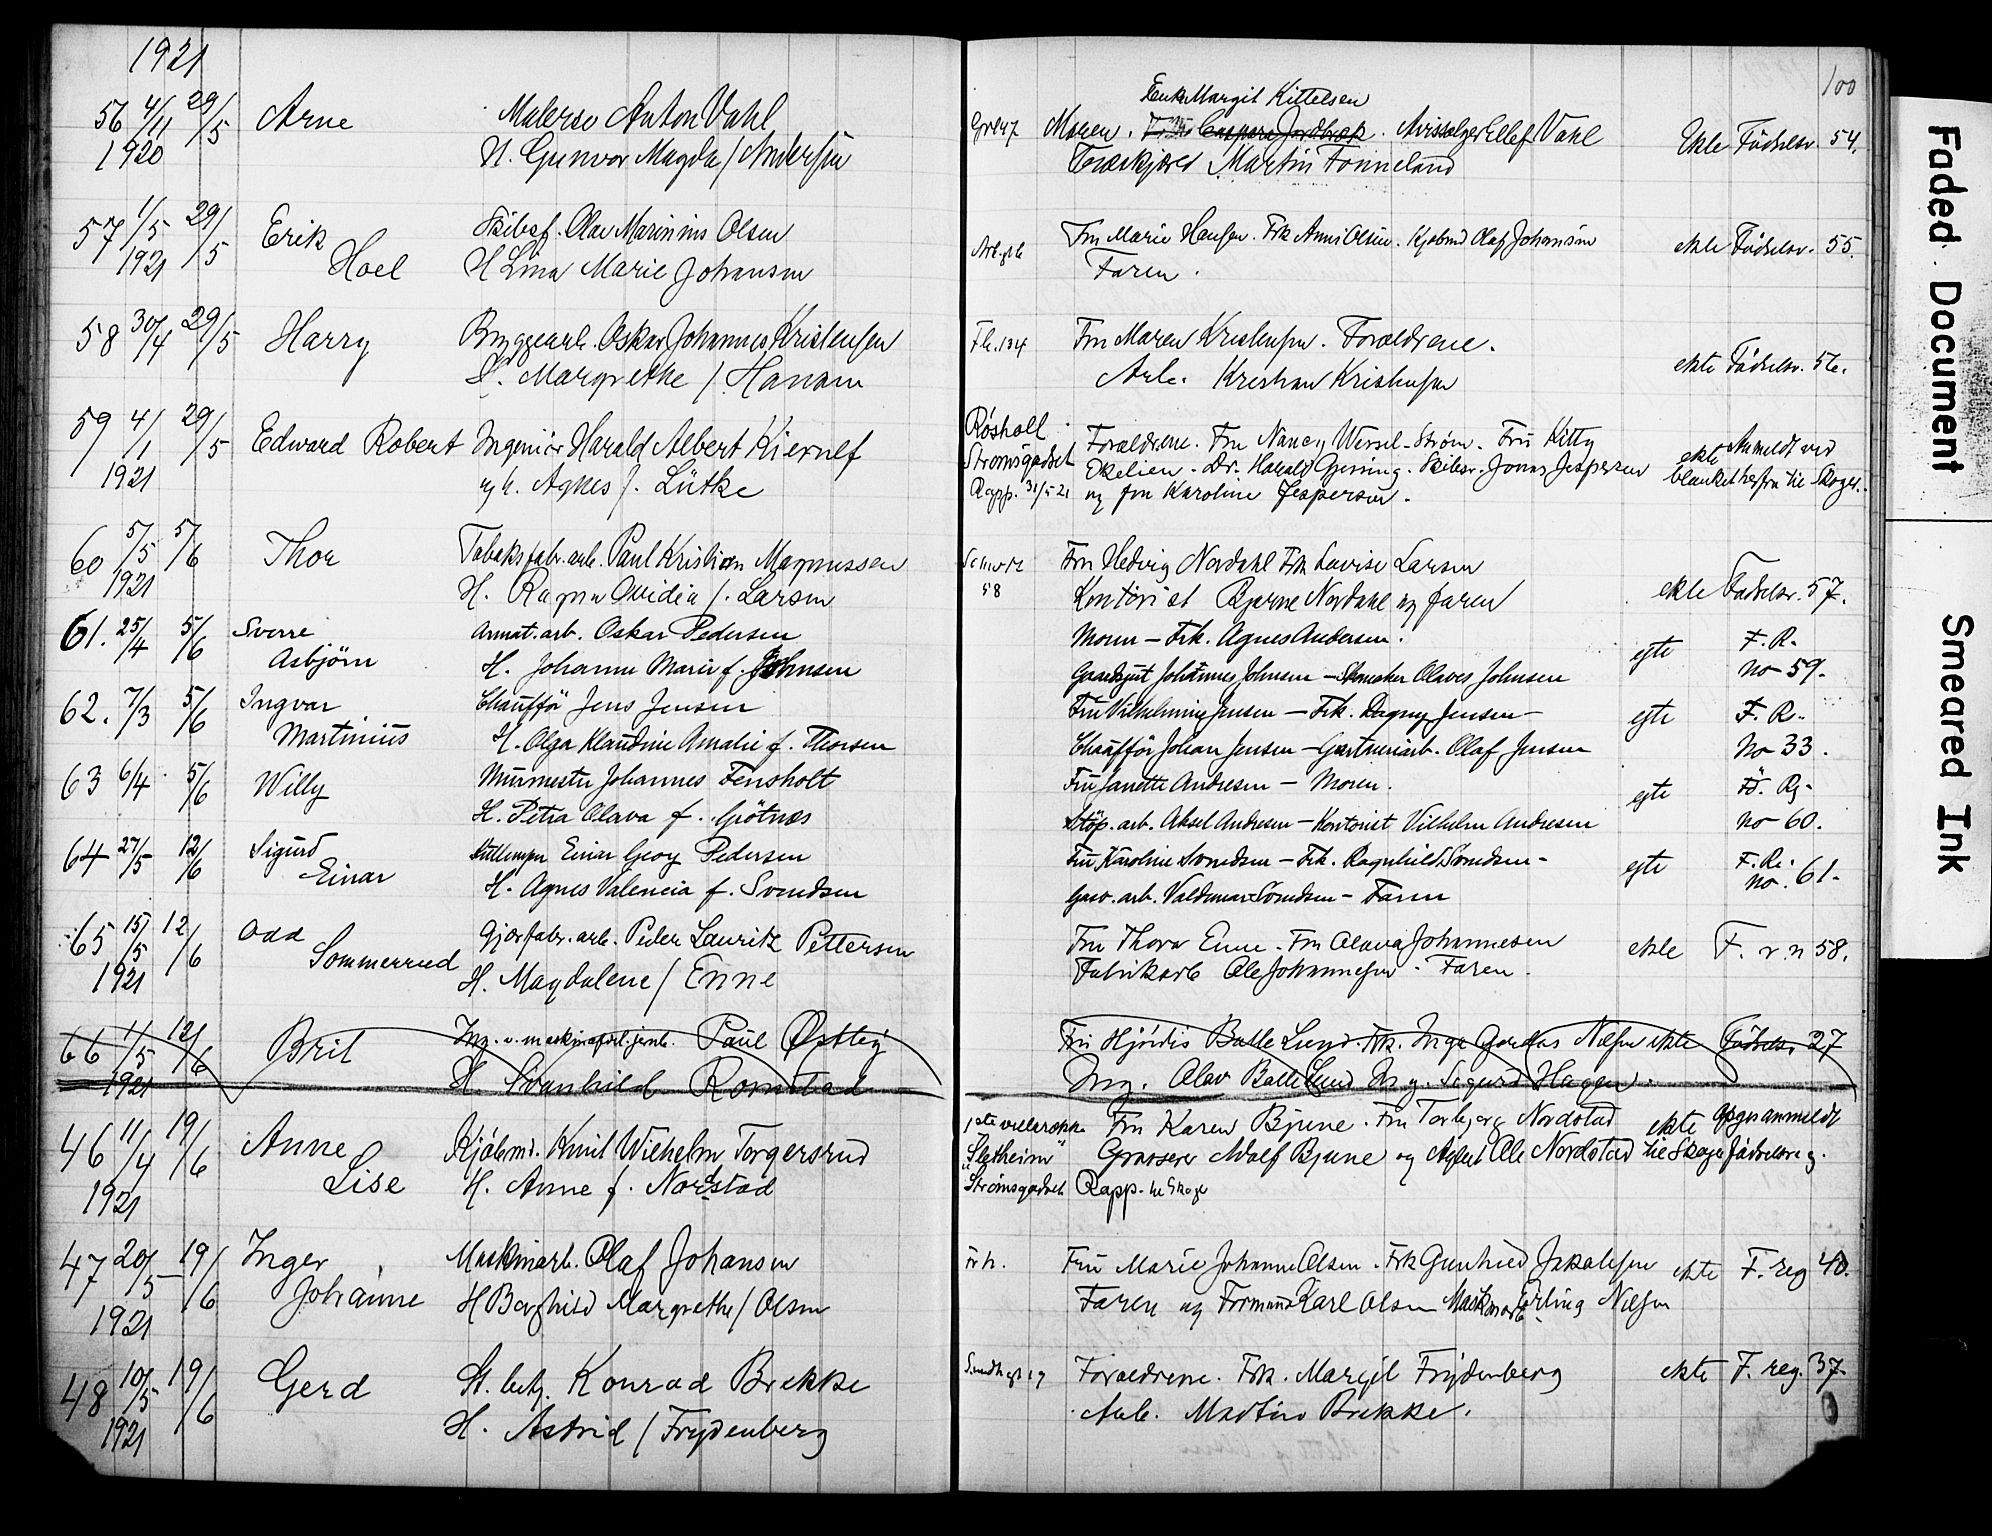 1921
100
56 4/11 1920 29/5 Arne Malersv Anton Vahl
H. Gunvor Magda f. Andersen
Enke Margit Kittelsen
Moren. Avissælger Ellef Vahl
Martin Tonneland
ekte Fødselsr. 54.
57 1/5 1921 29/5 Erik
Hoel
Skibsf. Olav Marinius Olsen
H Lina Marie Johansen
Fru Marie Hansen. Frk Anni Olsen. Kjøbmd Olaf Johansen
Faren.
ekte Fødselsr. 55.
58 30/4 29/5 Harry Bryggearb. Oskar Johannes Kristensen
H. Margrethe f. Hansen
Fru Maren Kristensen. Forældrene.
Arb. Kristian Kristensen
ekte Fødselsr. 56.
59 4/1 1921 29/5 Edward Robert Ingeniör Harald Albert Kiernlf
og h. Agnes f. Lütke
Röskoll
Stromsgodset
Rapp. 31/5 21
Forældrene. Fru Nancy Wessel-Strøm. Fru Kitty
Ekelien. Dr. Harald Gjersing. Skibsr. Jonas Jespersen
og fru Karoline Jespersen.
ekte Anmeldt ved
blanket herfra til Skoger.
60 5/5 1921 5/6 Thor Tobaksfabr.arb. Paul Kristian Magnussen
H. Ragna Ovidia f. Larsen
58
Fru Hedvig Nordahl Frk Lovise Larsen
Kontörist Bjarne Nordahl og faren
ekte Fødselsr. 57.
61. 25/4 5/6 Sverre
Asbjörn
Armat.arb. Oskar Pedersen
H. Johanne Marie f. Johnsen
Moren – Frk. Agnes Andersen.
Johannes Johnsen – Skomaker Olaves Johnsen
egte F. R.
No 59.
62. 7/3 5/6 Ingvar
Martinius
Chaufför Jens Jensen
H. Olga Klaudine Amalie f. Thorsen
Fru Vilhelmine Jensen – Frk. Dagny Jensen –
Chauffør Johan Jensen – Gartneriarb. Olaf Jensen
egte F. R.
No 33.
63 6/4 5/6 Willy Murmester Johannes Fensholt
H. Petra Olava f. Gjötnes
Fru Janette Andresen – Moren.
Støp. arb. Aksel Andresen – Kontorist Vilhelm Andresen
egte Fö. Rg.
no 60.
64 27/5 12/6 Sigurd
Einar
Einar Georg Pedersen
H. Agnes Valencia f. Svendsen
Fru Karoline Svendsen – Frk. Ragnhild Svendsen –
Garv. arb. Valdemar Svendsen – Faren
egte F. R.
no. 61.
65 15/5 1921 12/6 Odd
Sommerrud
Gjærfabr. arb. Peder Lauritz Pettersen
H. Magdalene f Enne
Fru Thora Enne. Fru Olava Johannesen
Fabrikarb Ole Johannesen. Faren.
ekte F. r. n 58.
66 11/5 1921 12/6 Brit Ing. v. maskinafdl. jernb. Paul Østbÿ
H. Svanhild Romstad
Fru Hjördis Balle Lund. Frk. Inga Gerdas Nilsen ekte Fødselsr. 27
Ing. Olav Balle Lund Ing. Sigurd Haggen.
46 11/4 1921 19/6 Anne
Lise
Kjöbmd. Knut Wilhelm Torgersrud
H. Anne f. Nordstad
1ste villarække
"Sletheim"
Strömsgodset
Fru Karen Bjune. Fru Torbjørg Nordstad
Grosserer Adolf Bjune og Agent Ole Nordstad
Rapp. til Skoger
ekte opgis anmeldt
til Skoger fødselsreg.
47 20/5 1921 19/6 Inger
Johanne
Maskinarb. Olaf Johansen
H Borghild Margrethe f Olsen
Fru Marie Johanne Olsen. Frk Gunhild Jakobsen
Faren og Formand Karl Olsen Maskinarb Erling Nilsen
ekte F. reg 40.
48 10/5 1921 19/6 Gerd St. betj. Konrad Brekke
H. Astrid f Frydenberg
Forældrene. Frk. Margit Frydenberg
Arb. Martin Brekke.
ekte F. reg. 37.
Faded Document
Smeared Ink